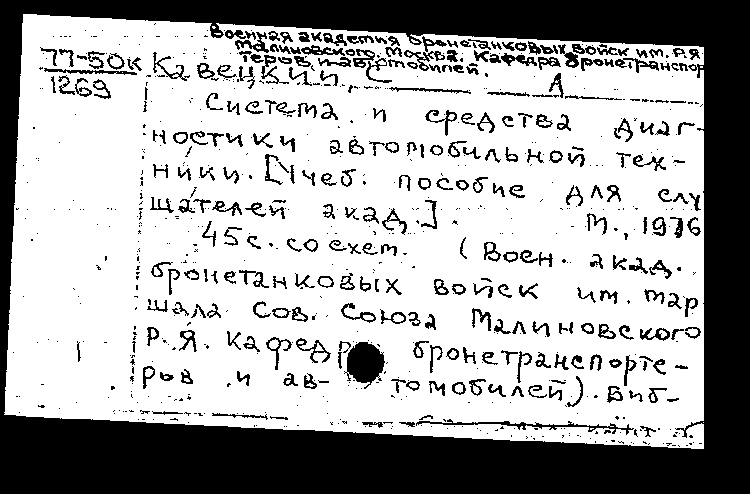 Военная академия бронетанковых войск им. Р.Я
Малиновского. Москва. Кафедра бронетранспор
теров и автомобилей.
77-50к
1269
Кавецкий, С А
Система и средства диаг-
ностики автомобильной тех-
ники. [Учеб. пособие для слу
шателей акад.]. М., 1976
45с. со схем. (Воен. акад.
бронетанковых войск им. мар
шала Сов. Союза Малиновского
Р.Я. Кафедр бронетранспорте-
ров и ав- томобилей). Биб-